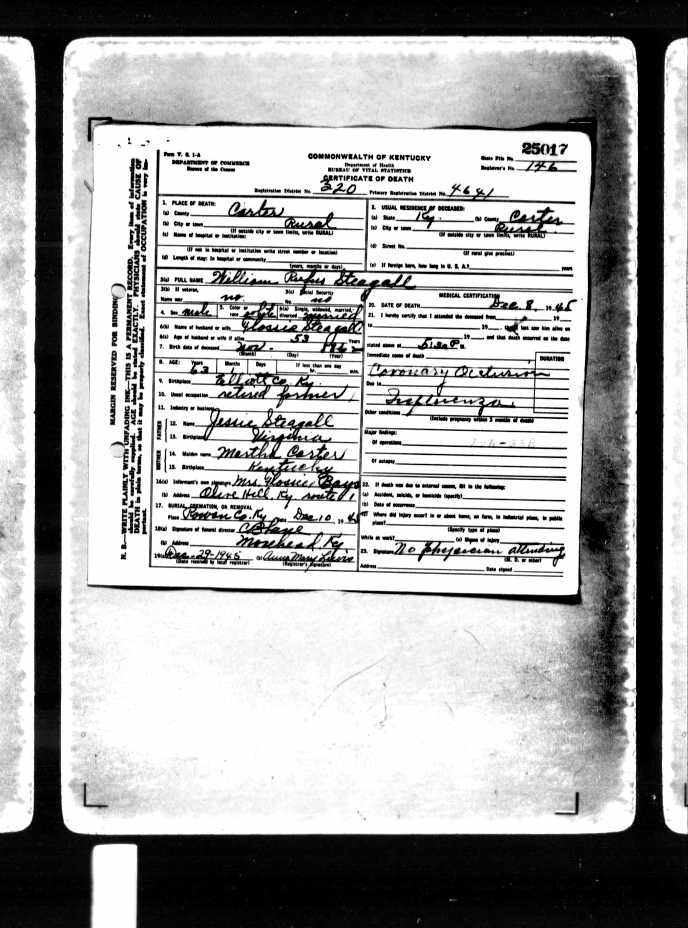 25017
Form V. S. 1-A
DEPARTMENT OF COMMERCE
Bureau of the Census
COMMONWEALTH OF KENTUCKY
Department of Health
BUREAU OF VITAL STATISTICS
CERTIFICATE OF DEATH
State File No.
Registrar's No. 146
Registration District No. 220 Primary Registration District No. 4641
MARGIN RESERVED FOR BINDING
N. B.—WRITE PLAINLY WITH UNFADING INK—THIS IS A PERMANENT RECORD. Every item of information
should be carefully supplied. AGE should be stated EXACTLY. PHYSICIANS should state CAUSE OF
DEATH in plain terms, so that it may be properly classified. Exact statement of OCCUPATION is very important.
1. PLACE OF DEATH:
(a) County Carter
(b) City or town Rural
(If outside city or town limits, write RURAL)
(c) Name of hospital or institution:
(If not in hospital or institution write street number or location)
(d) Length of stay: In hospital or community
(years, months or days)
2. USUAL RESIDENCE OF DECEASED:
(a) State Ky. (b) County Carter
(c) City or town Rural
(If outside city or town limits, write RURAL)
(d) Street No.
(If rural give precinct)
(e) If foreign born, how long in U. S. A.? years
3(a) FULL NAME William Rufus Steagall
3(b) If veteran,
Name war no
3(c) Social Security
No. no
4. Sex male 5. Color or race white 6(a) Single, widowed, married, divorced married
6(b) Name of husband or wife Flossie Steagall
6(c) Age of husband or wife if alive 53 Years
7. Birth date of deceased Nov.
(Month) (Day) (Year)
8. AGE: Years Months Days If less than one day
63 1
9. Birthplace Elliott Co. Ky.
10. Usual occupation retired farmer
11. Industry or business
FATHER
12. Name Jessie Steagall
13. Birthplace Virginia
MOTHER
14. Maiden name Martha Carter
15. Birthplace Kentucky
16(a) Informant's own signature Mrs. Flossie Bays
(b) Address Olive Hill, Ky. route 1
17. BURIAL, CREMATION, OR REMOVAL
Place Rowan Co. Ky Date Dec 10, 1945
18(a) Signature of funeral director C B Lane
(b) Address Morehead, Ky
19(a) Dec-29-1945 (b) Anna Mary Lewis
(Date received by local registrar) (Registrar's Signature)
MEDICAL CERTIFICATION
20. DATE OF DEATH Dec. 8, 1945
21. I hereby certify that I attended the deceased from 19
to 19 that I last saw him alive on
19 and that death occurred on the date
stated above at 5:30 P M.
Immediate cause of death DURATION
Coronary Occlusion
Due to
Influenza
Other conditions
(Include pregnancy within 3 months of death)
Major findings:
Of operations
Of autopsy
22. If death was due to external causes, fill in the following:
(a) Accident, suicide, or homicide (specify)
(b) Date of occurrence
(c) Where did injury occur? in or about home, on farm, in industrial place, in public
place?
(Specify type of place)
While at work? (e) Means of injury
23. Signature No physician attending
(M. D. or other)
Address Date signed